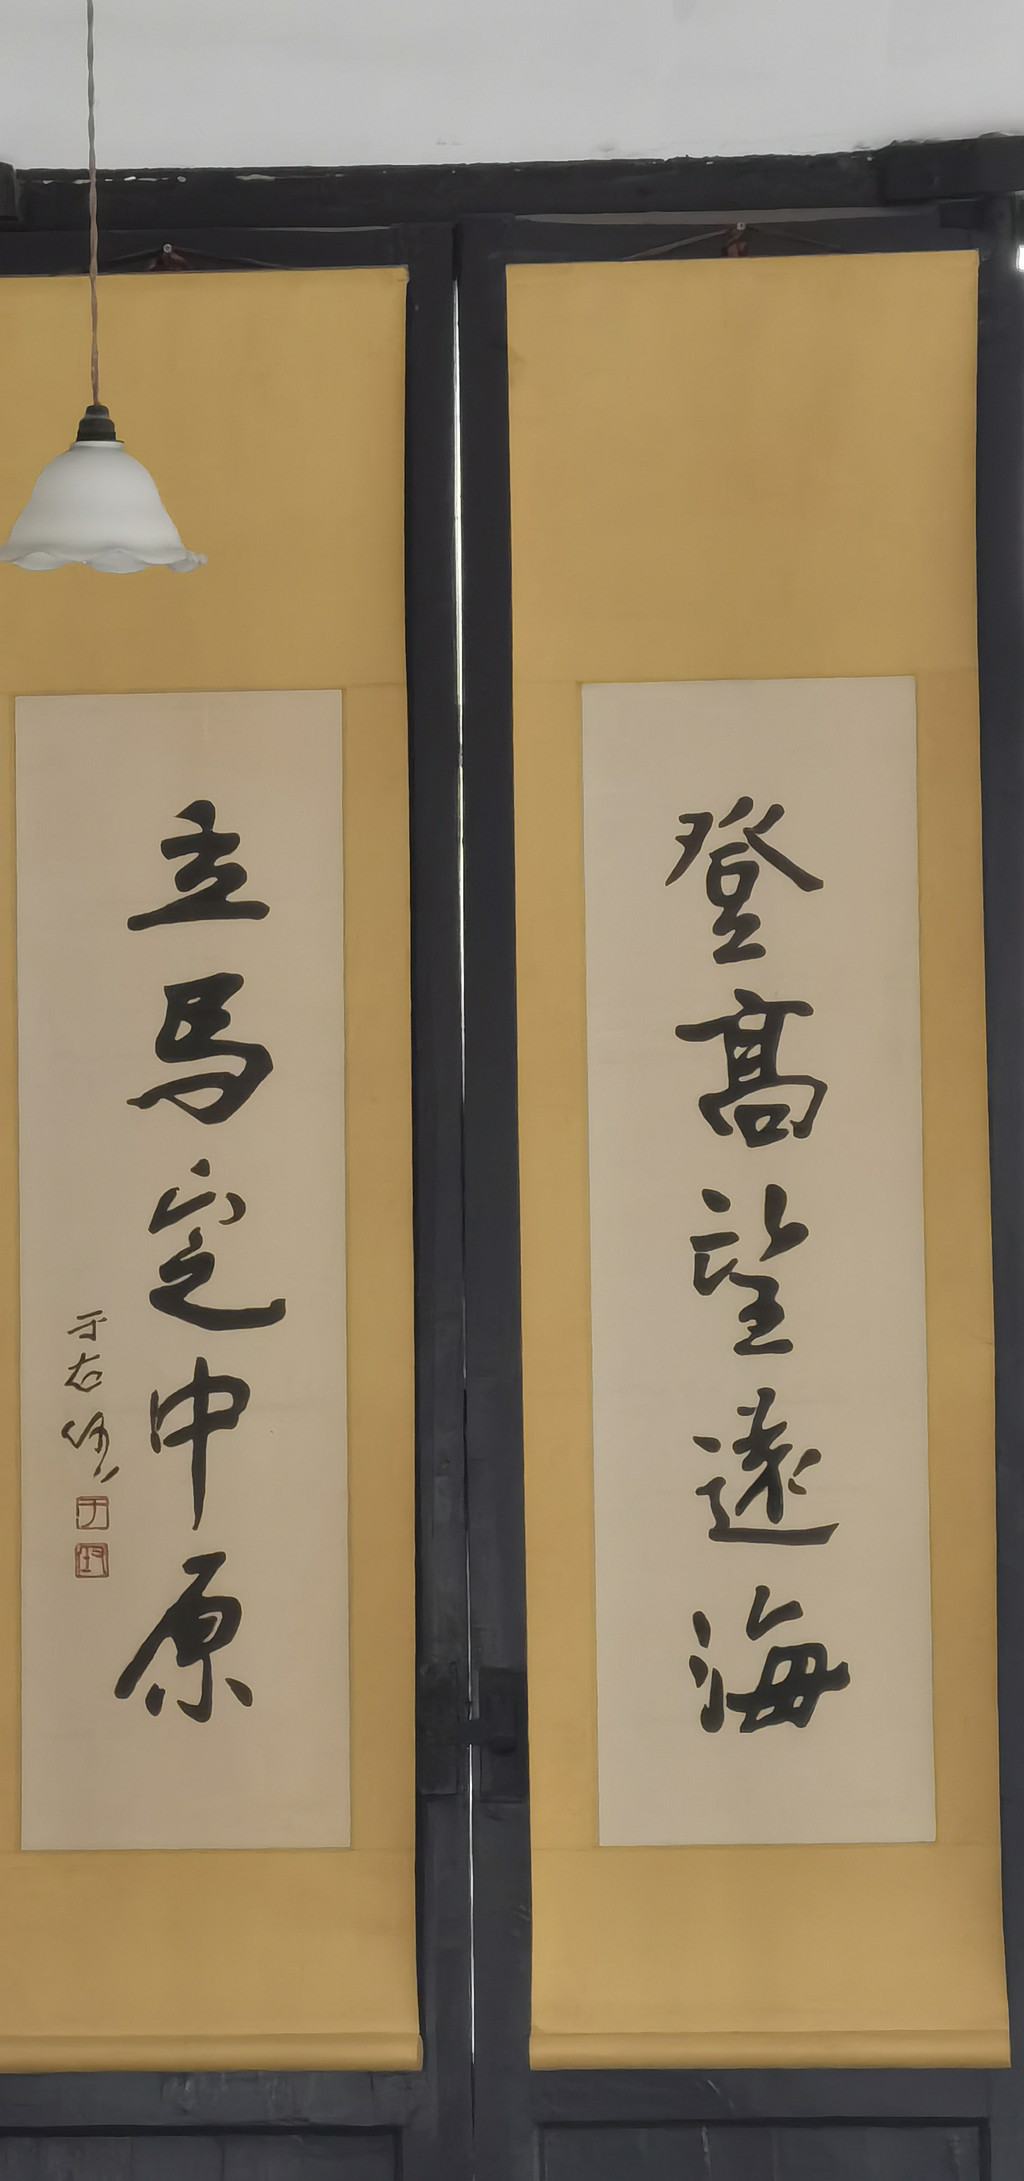 登高望遠海
立馬定中原
于右任